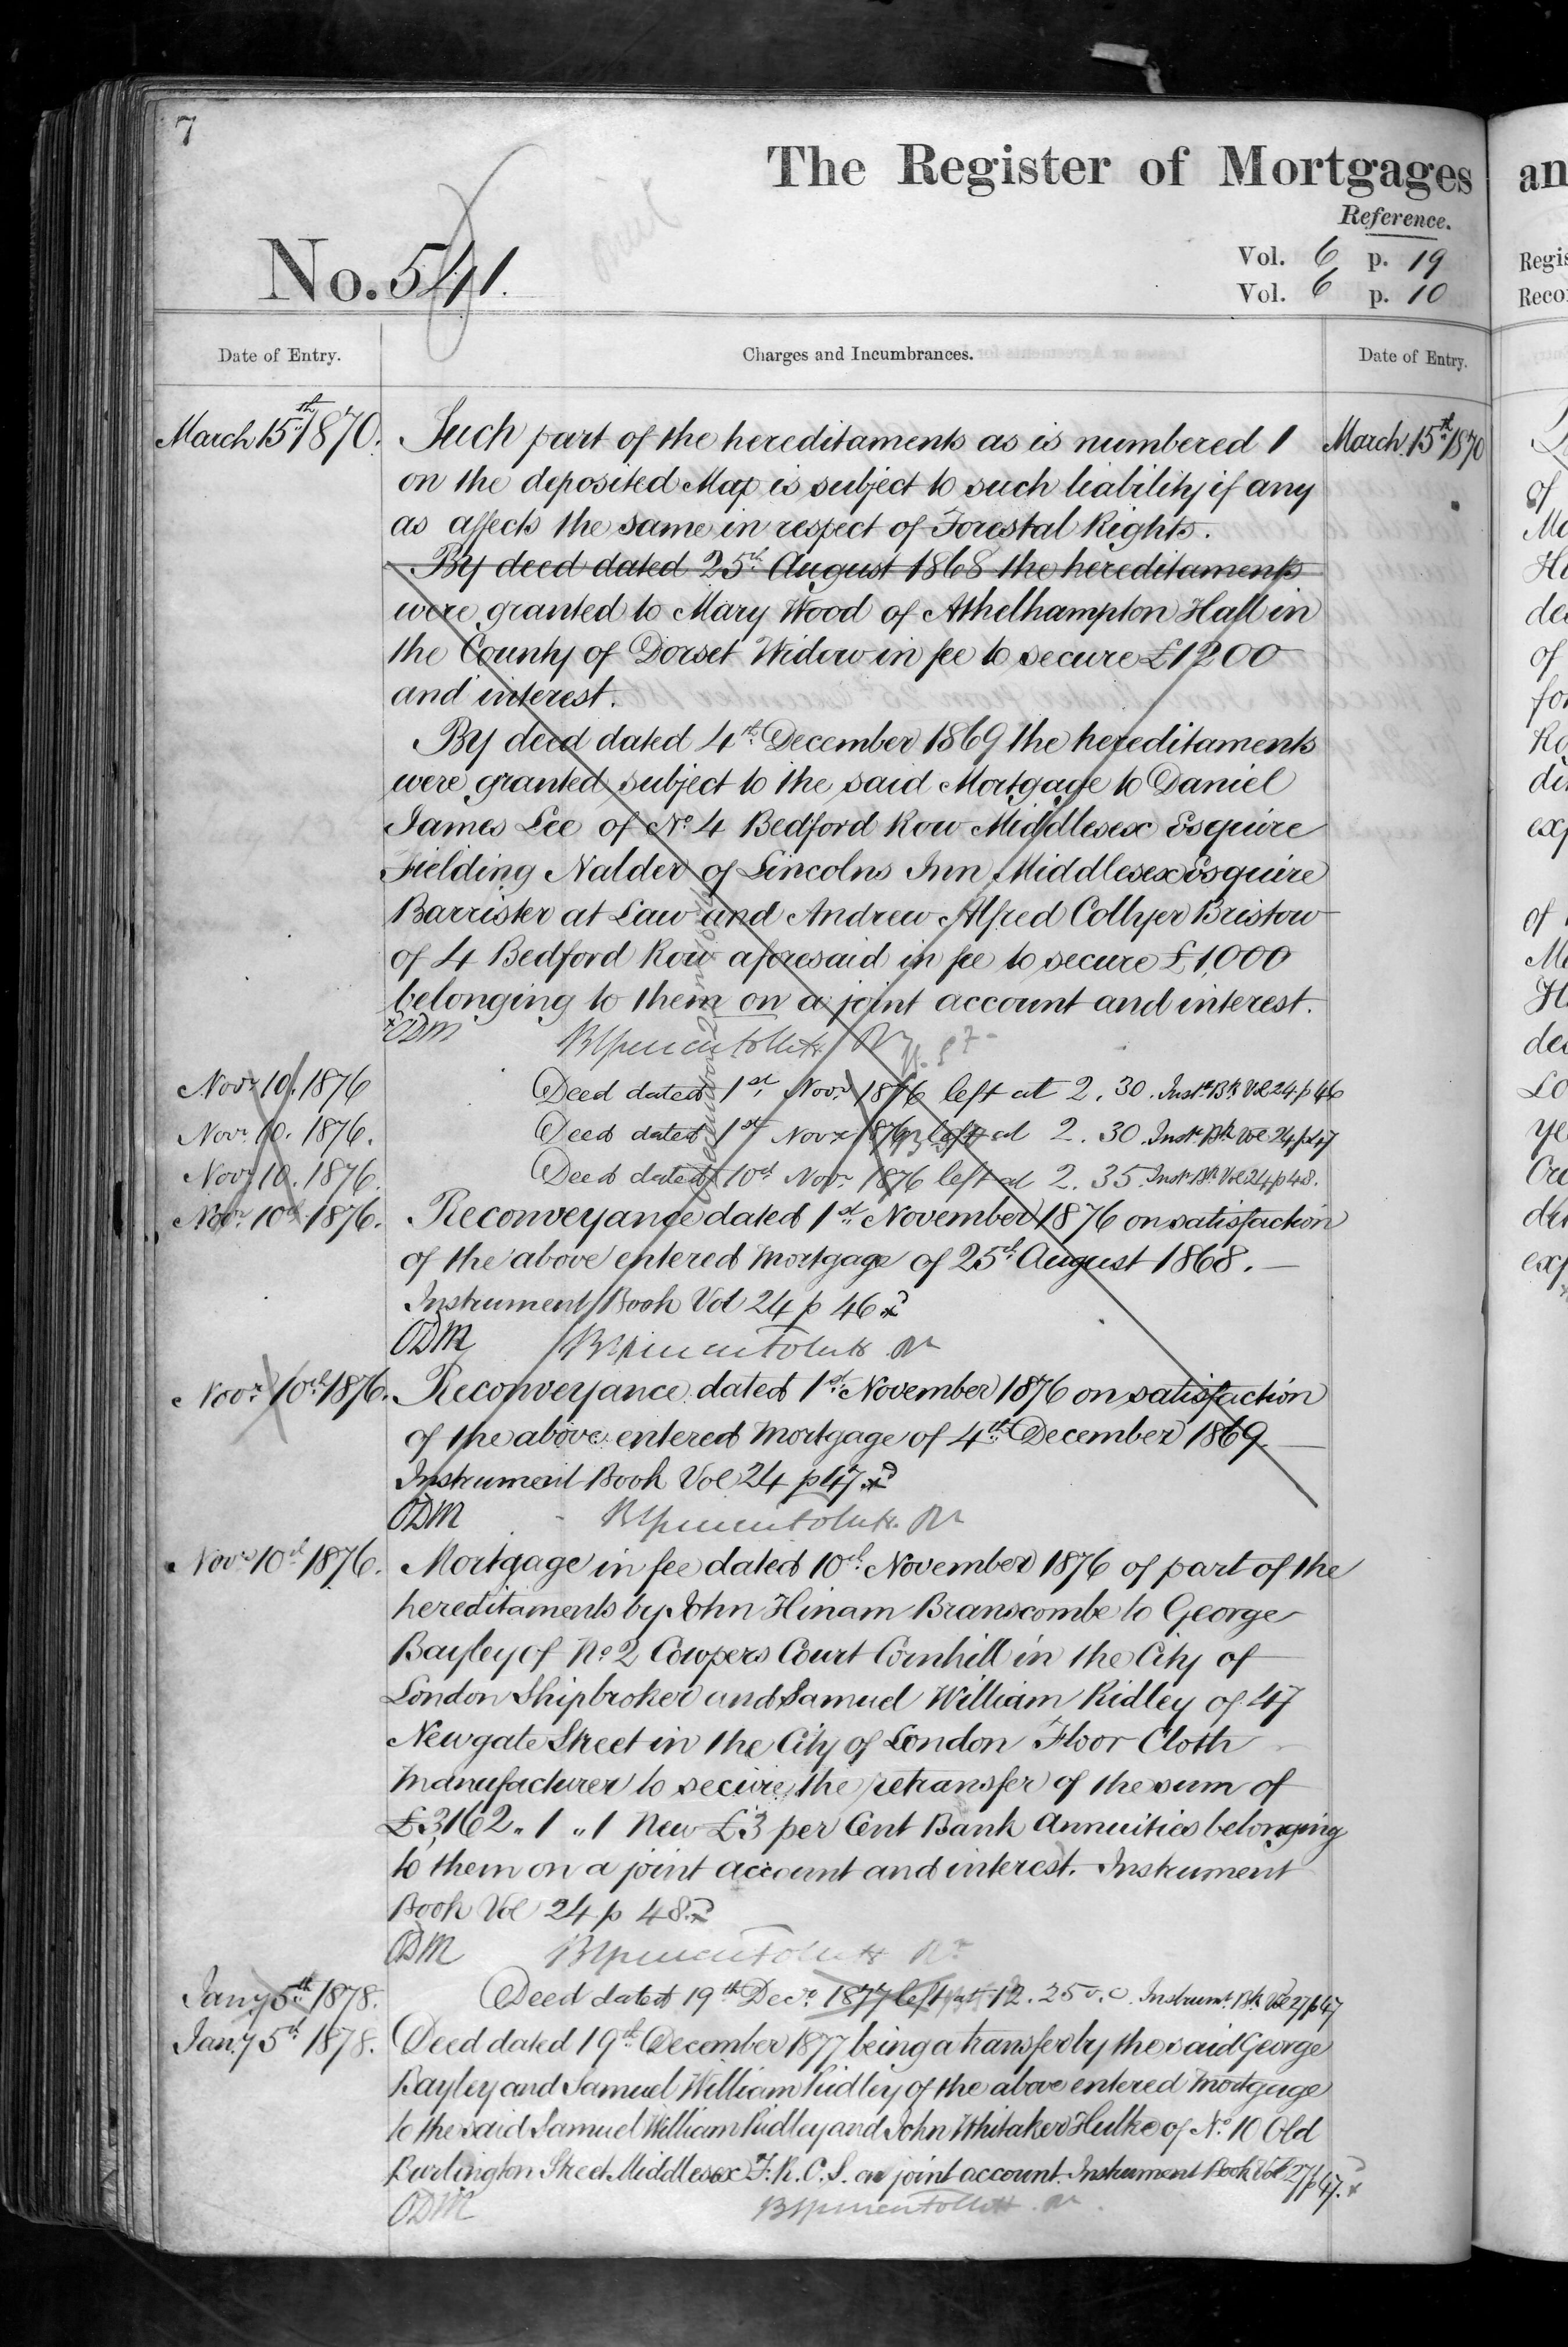 7
The Register of Mortgages
an
Reference.
No. 541.
Vol. 6 p. 19
Vol. 6 p. 10
Regis
Recor
Date of Entry.
Charges and Incumbrances.
Date of Entry.
March 15th 1870.
Such part of the hereditaments as is numbered 1
March 15th 1870
on the deposited Map is subject to such liability if any
as affects the same in respect of Forestal Rights.
By deed dated 25th August 1868 the hereditaments
were granted to Mary Wood of Athelhampton Hall in
the County of Dorset Widow in fee to secure £1200
and interest.
By deed dated 4th December 1869 the hereditaments
were granted subject to the said Mortgage to Daniel
James Lee of No 4 Bedford Row Middlesex Esquire
Fielding Nalder of Lincolns Inn Middlesex Esquire
Barrister at Law and Andrew Alfred Collyer Bristow
of 4 Bedford Row aforesaid in fee to secure £1,000
belonging to them on a joint account and interest.
ODM
Novr 10. 1876 Deed dated 1st Novr 1876 left at 2.30. Inst Bk Vol 24 p 46
Novr 10. 1876. Deed dated 1st Novr 1876 left at 2.30. Inst Bk Vol 24 p 47
Novr 10. 1876. Deed dated 10th Novr 1876 left at 2.35. Inst Bk Vol 24 p 48.
Novr 10th 1876. Reconveyance dated 1st November 1876 on satisfaction
of the above entered Mortgage of 25th August 1868.
Instrument Book Vol 24 p 46
ODM
Novr 10th 1876. Reconveyance dated 1st November 1876 on satisfaction
of the above entered Mortgage of 4th December 1869.
Instrument Book Vol 24 p 47.
ODM
Novr 10th 1876. Mortgage in fee dated 10th November 1876 of part of the
hereditaments by John Hinam Branscombe to George
Bayley of No 2 Cowpers Court Cornhill in the City of
London Shipbroker and Samuel William Ridley of 47
Newgate Street in the City of London Floor Cloth
Manufacturer to secure the retransfer of the sum of
£3,162 " 1 " 1 New £3 per Cent Bank Annuities belonging
to them on a joint account and interest. Instrument
Book Vol 24 p 48.
ODM
Jany 5th 1878. Deed dated 19th Decr 1877 left at 12.25 Instrumt Bk Vol 27 p 47
Jany 5th 1878. Deed dated 19th December 1877 being a transfer by the said George
Bayley and Samuel William Ridley of the above entered Mortgage
to the said Samuel William Ridley and John Whitaker Hulke of No 10 Old
Burlington Street Middlesex F.R.C.S. on joint account. Instrument Book Vol 27 p 47.
ODM